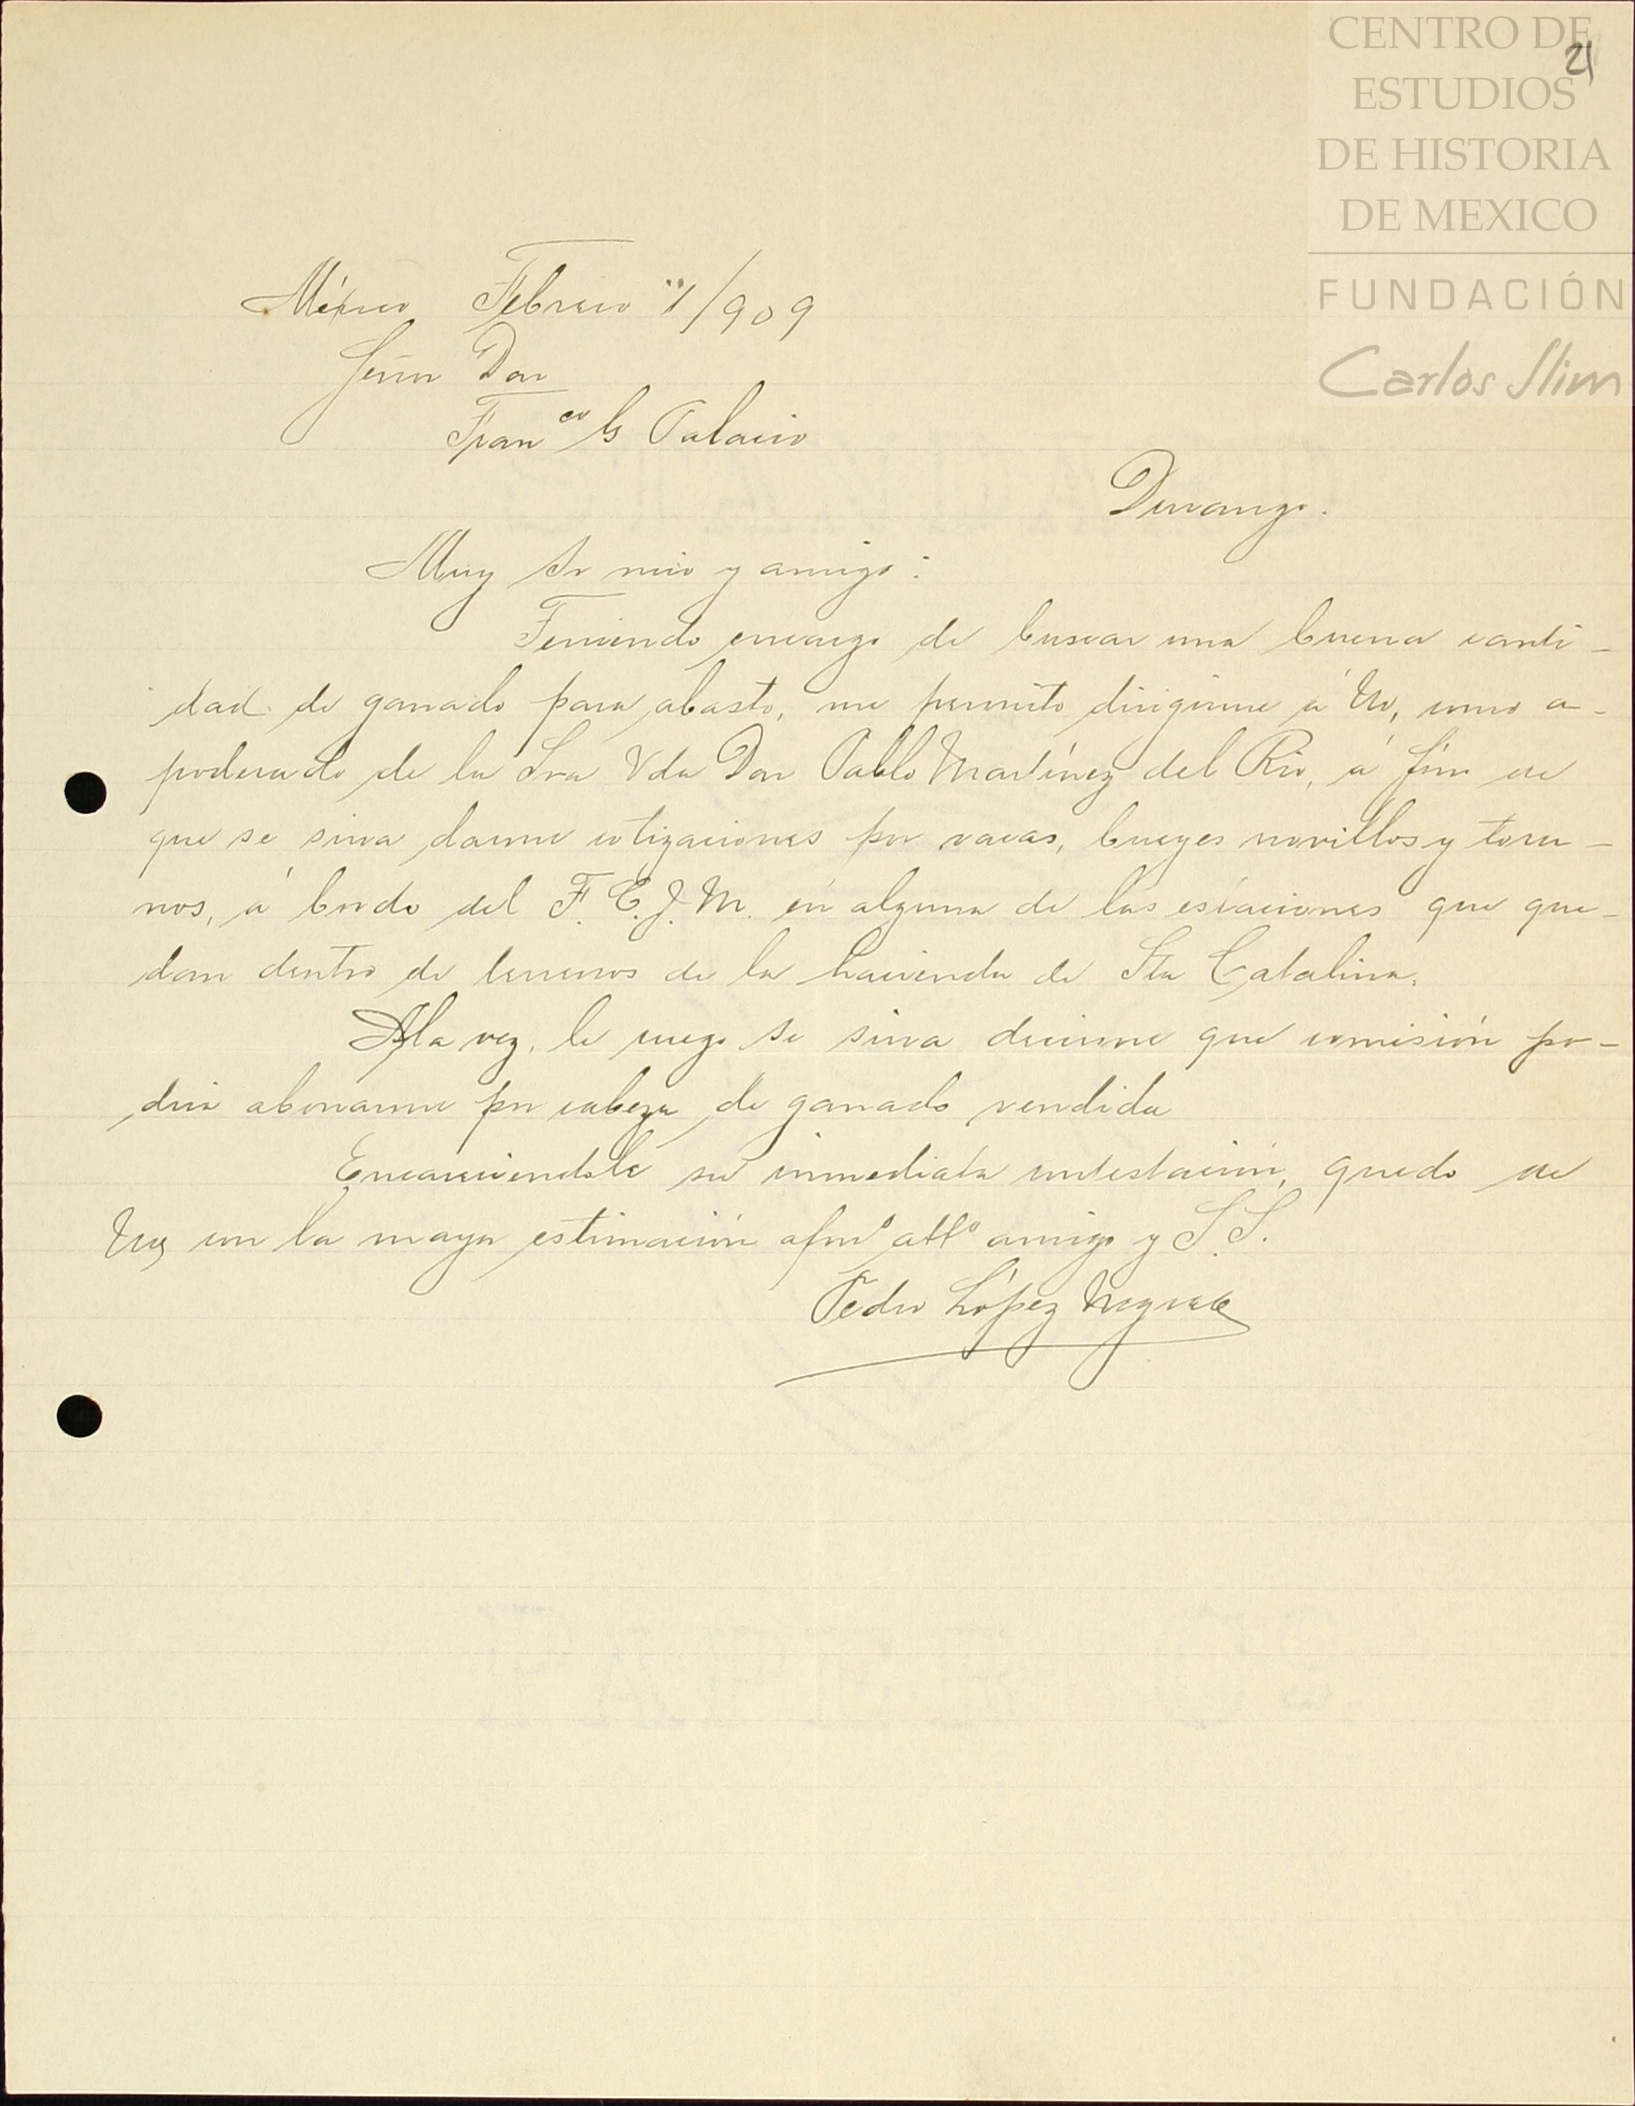 CENTRO DE
21
ESTUDIOS
DE HISTORIA
DE MEXICO
FUNDACIÓN
Carlos Slim
México Febrero 11/909
Señor Don
Fran co G Palacio
Durango.
Muy Sr mio y amigo:
Teniendo encargo de buscar una buena canti-
dad de ganado para abasto, me permito dirigirme á Ud, como a-
poderado de la Sra Vda Don Pablo Martínez del Rio, á fin de
que se sirva darme cotizaciones por vacas, bueyes novillos y toru-
nos, á bordo del F.C.I.M. en alguna de las estaciones que que-
dan dentro de terrenos de la hacienda de Sta Catalina.
A la vez, le ruego se sirva decirme que comisión po-
dría abonarme por cabeza de ganado vendida
Encareciendole su inmediata contestación, quedo de
Ud con la mayor estimación afmo atto amigo y S.S.
Pedro López